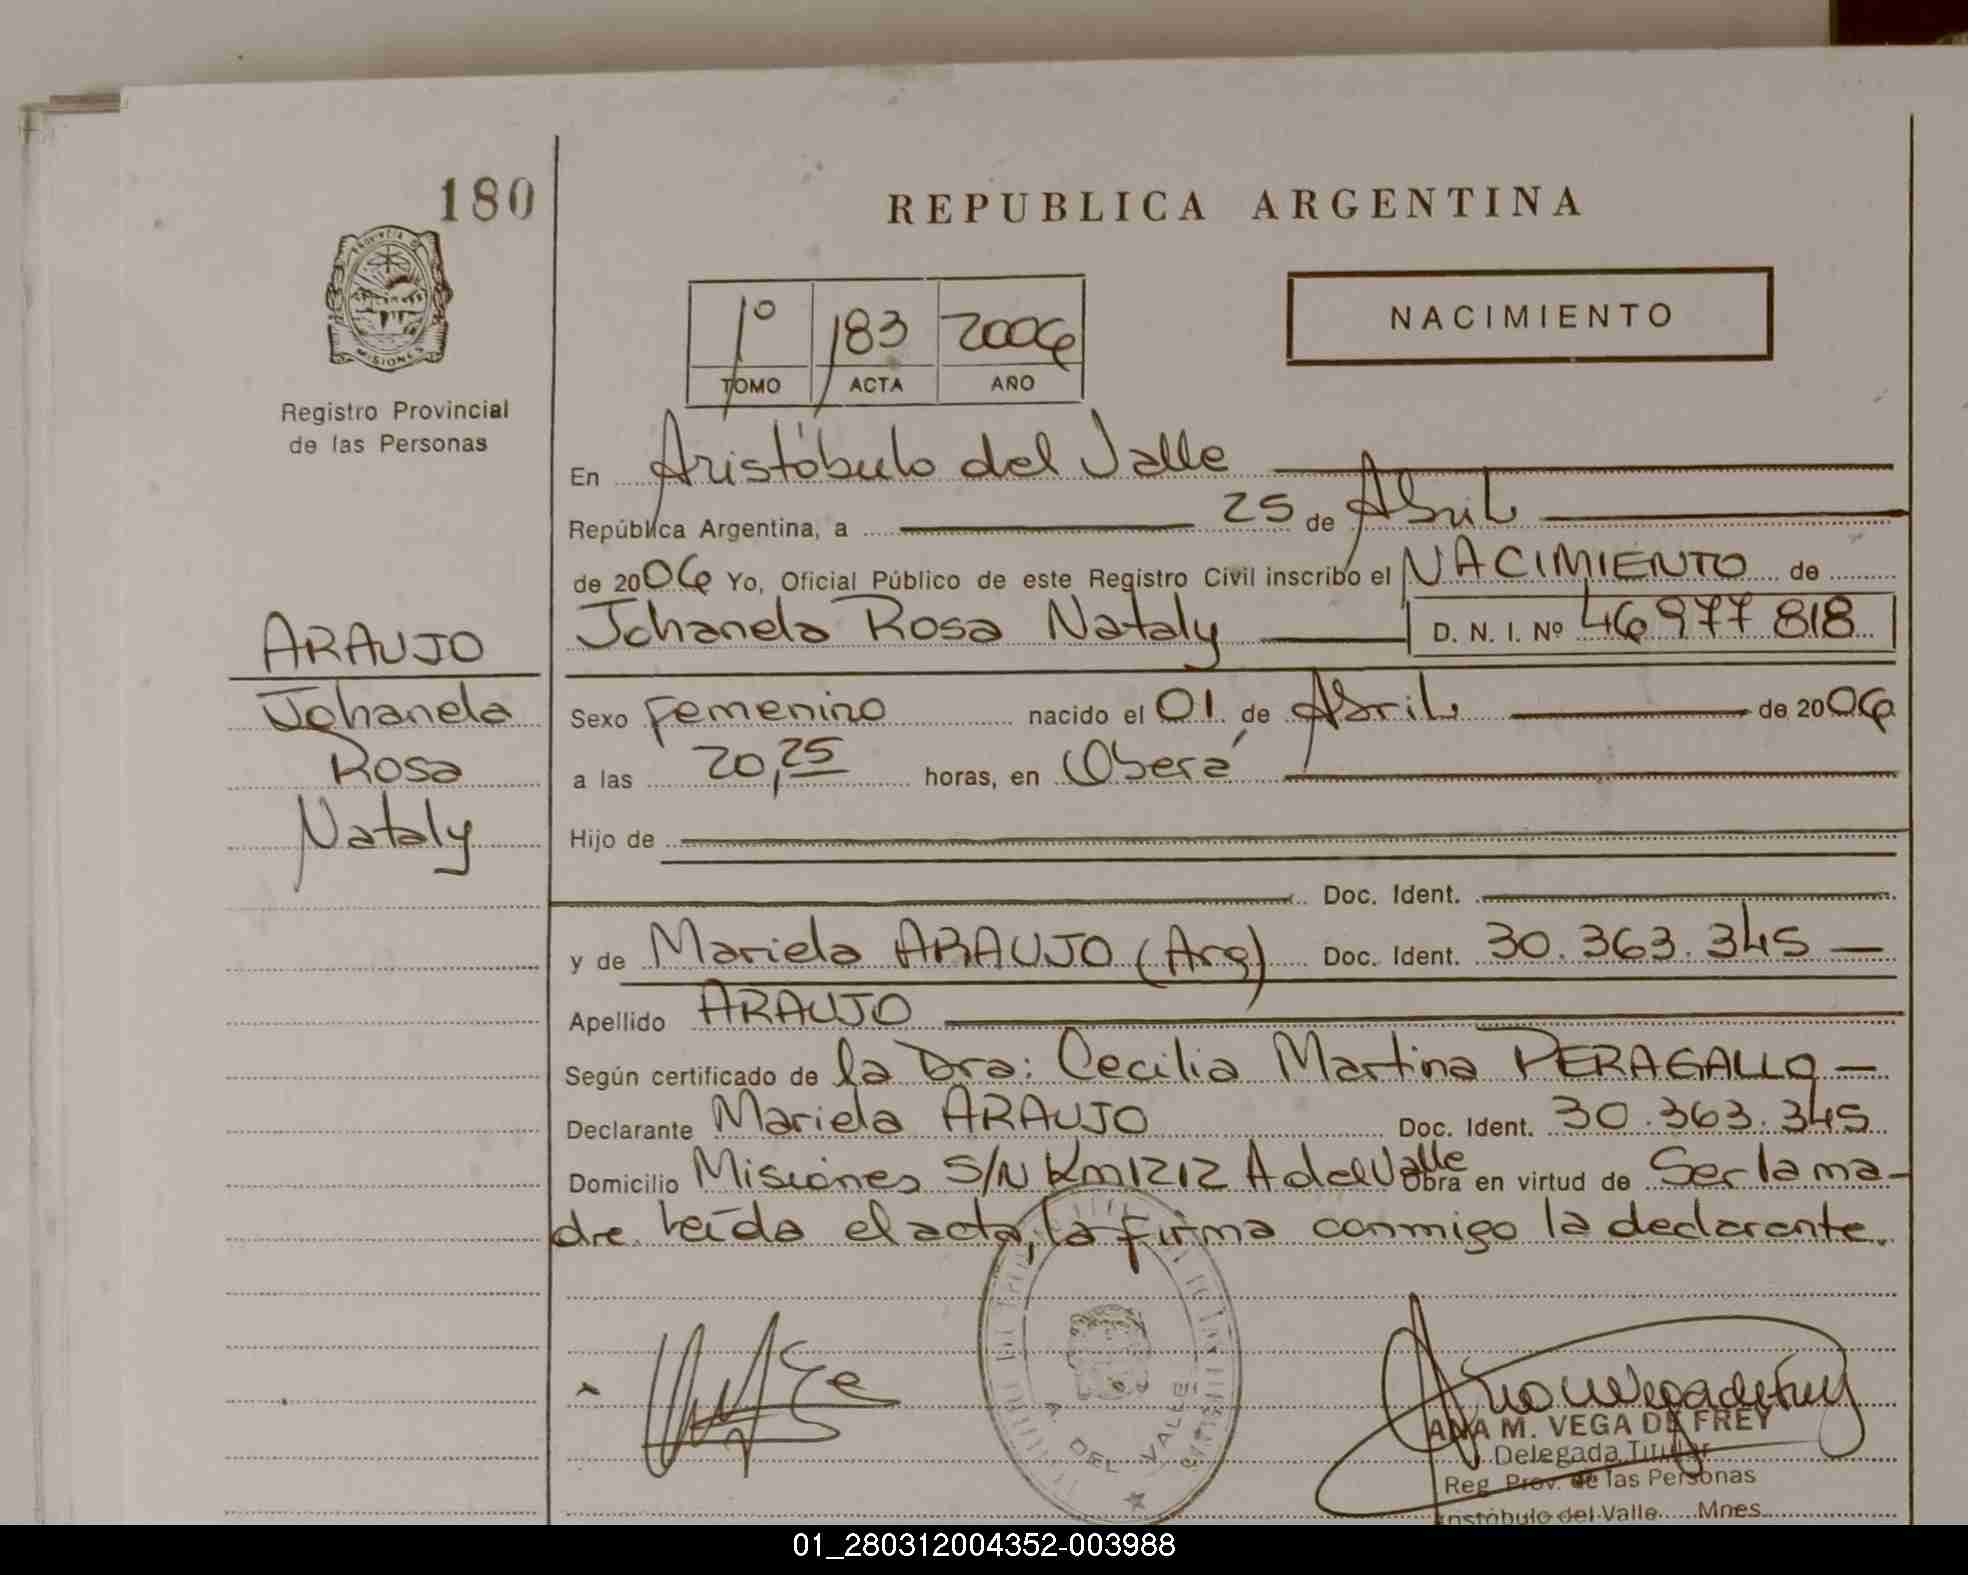 180
PROVINCIA DE
MISIONES
Registro Provincial
de las Personas
REPUBLICA ARGENTINA
1º 183 2006
TOMO ACTA AÑO
NACIMIENTO
En Aristóbulo del Valle
República Argentina, a 25 de Abril
de 2006 Yo, Oficial Público de este Registro Civil inscribo el NACIMIENTO de
Johanela Rosa Nataly D. N. I. Nº 46 977 818
ARAUJO
Johanela
Rosa
Nataly
Sexo femenino nacido el 01 de Abril de 2006
a las 20,25 horas, en Oberá
Hijo de
Doc. Ident.
y de Mariela ARAUJO (Arg) Doc. Ident. 30.363.345
Apellido ARAUJO
Según certificado de la Dra: Cecilia Martina PERAGALLO
Declarante Mariela ARAUJO Doc. Ident. 30.363.345
Domicilio Misiones S/N Km1212 A del Valle Obra en virtud de Ser la ma-
dre. Leída el acta, la firma conmigo la declarante.
A. DEL VALLE
ANA M. VEGA DE FREY
Delegada Titular
Reg. Prov. de las Personas
istóbulo del Valle Mnes.
01_280312004352-003988